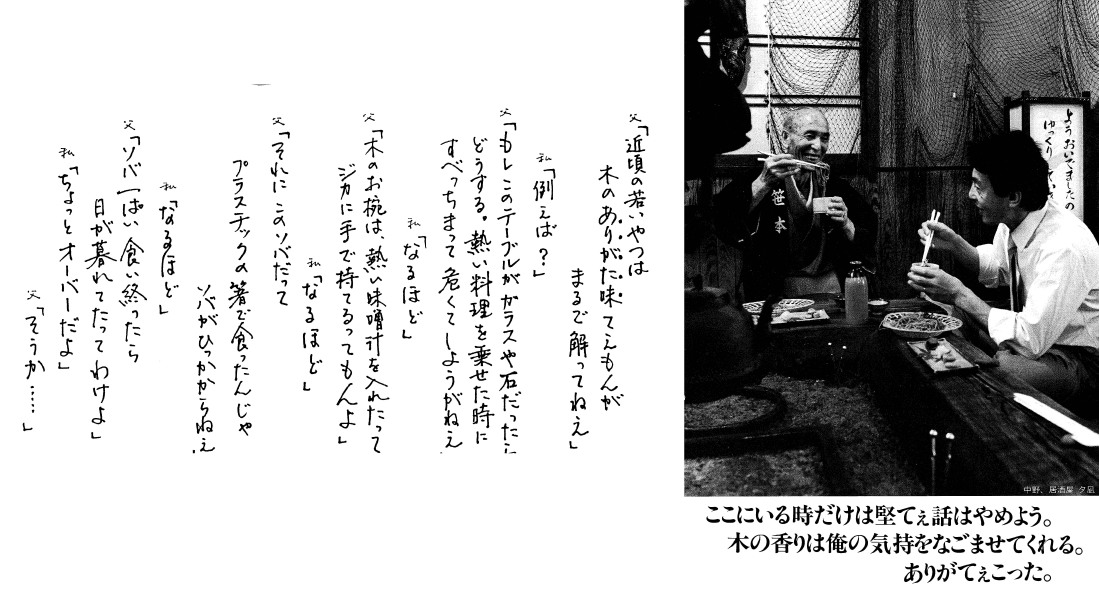 父「近頃の若いやつは
木のありがた味てえもんが
まるで解ってねえ」
私「例えば?」
父「もしこのテーブルがガラスや石だったら
どうする。熱い料理を乗せた時に
すべっちまって危くてしようがねえ
私「なるほど」
父「木のお椀は、熱い味噌汁を入れたって
ジカに手で持てるってもんよ」
私「なるほど」
父「それにこのソバだって
プラスチックの箸で食ったんじゃ
ソバがひっかからねえ
私「なるほど」
父「ソバ一ぱい食い終ったら
日が暮れてたってわけよ」
私「ちょっとオーバーだよ」
父「そうか……」
ようおいでましたの
ゆっくりしてい
笹本
中野、居酒屋 夕凪
ここにいる時だけは堅てぇ話はやめよう。
木の香りは俺の気持をなごませてくれる。
ありがてぇこった。